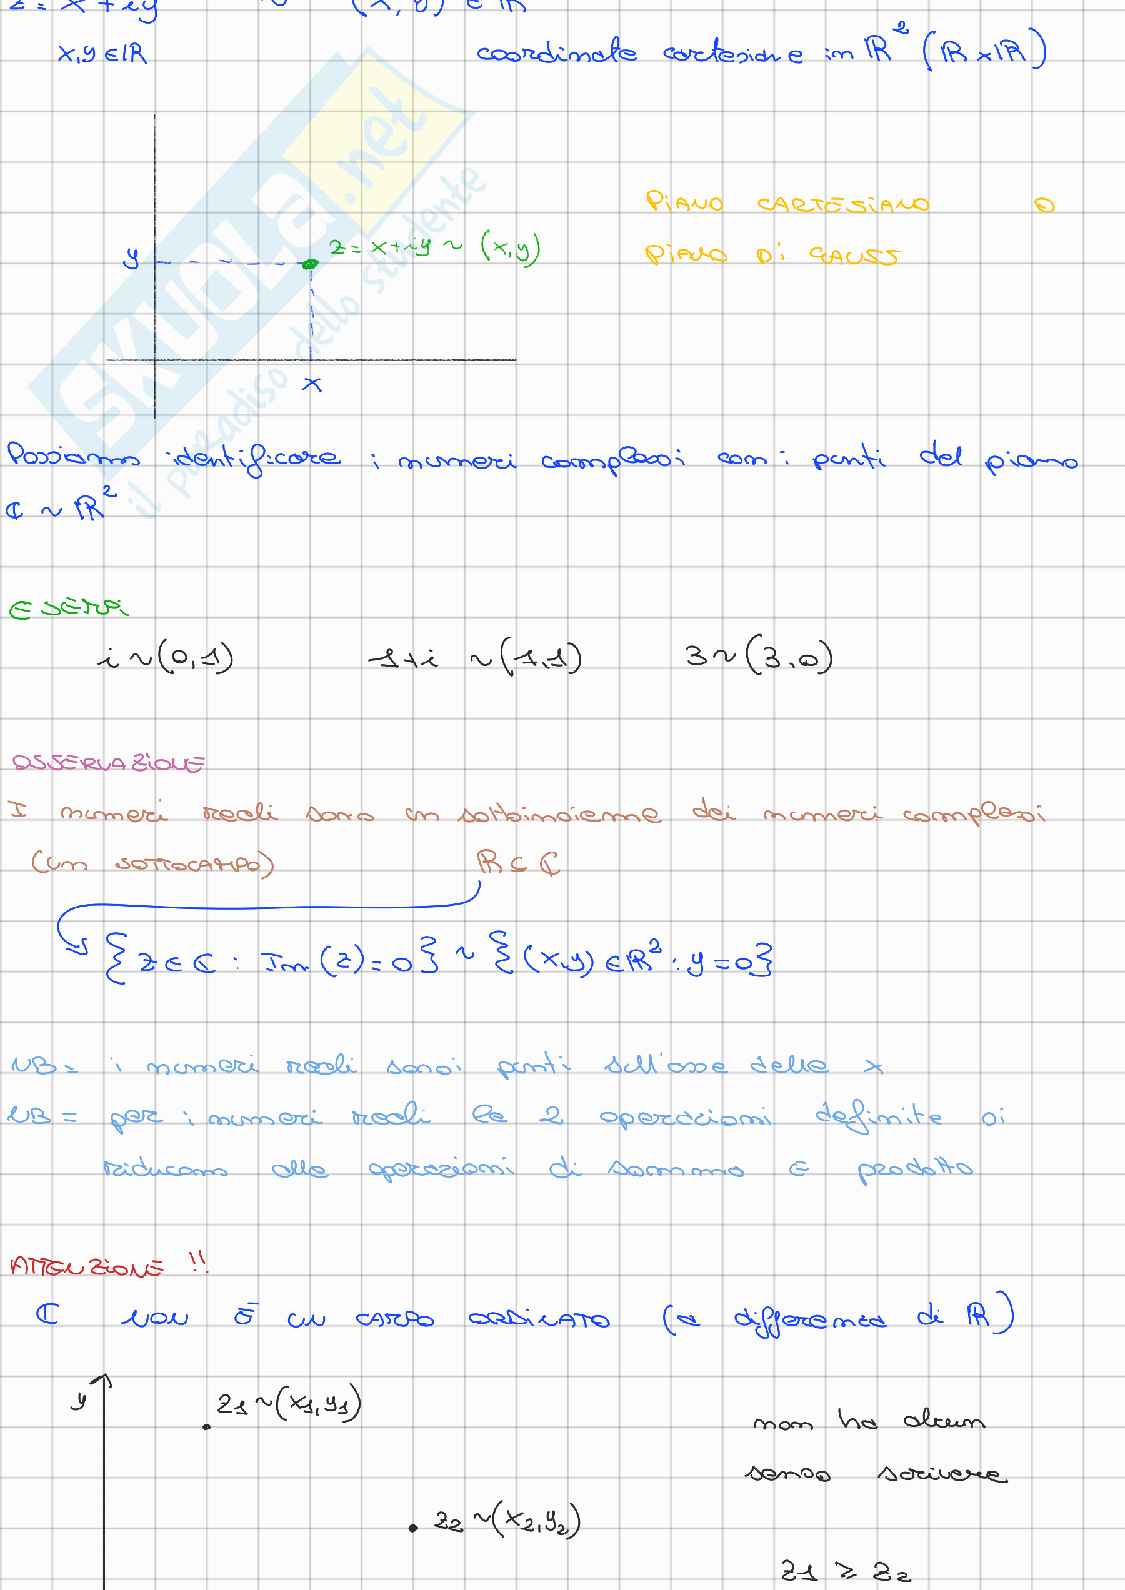 z = x + iy ~ (x, y) ∈ ℝ²
x, y ∈ ℝ coordinate cartesiane in ℝ² (ℝ x ℝ)
SKUOLA.net
il paradiso dello studente
PIANO CARTESIANO O
PIANO DI GAUSS
y
z = x + iy ~ (x, y)
x
Possiamo identificare i numeri complessi con i punti del piano
ℂ ~ ℝ²
ESEMPI
i ~ (0,1) 1+i ~ (1,1) 3 ~ (3,0)
OSSERVAZIONE
I numeri reali sono un sottoinsieme dei numeri complessi
(un SOTTOCAMPO) ℝ ⊆ ℂ
{z ∈ ℂ : Im(z) = 0} ~ {(x,y) ∈ ℝ² : y = 0}
NB = i numeri reali sono i punti sull'asse delle x
NB = per i numeri reali le 2 operazioni definite si
riducono alle operazioni di somma E prodotto
ATTENZIONE !!
ℂ NON È UN CAMPO ORDINATO (a differenza di ℝ)
y
z1 ~ (x1, y1)
non ha alcun
senso scrivere
z2 ~ (x2, y2)
z1 ≥ z2